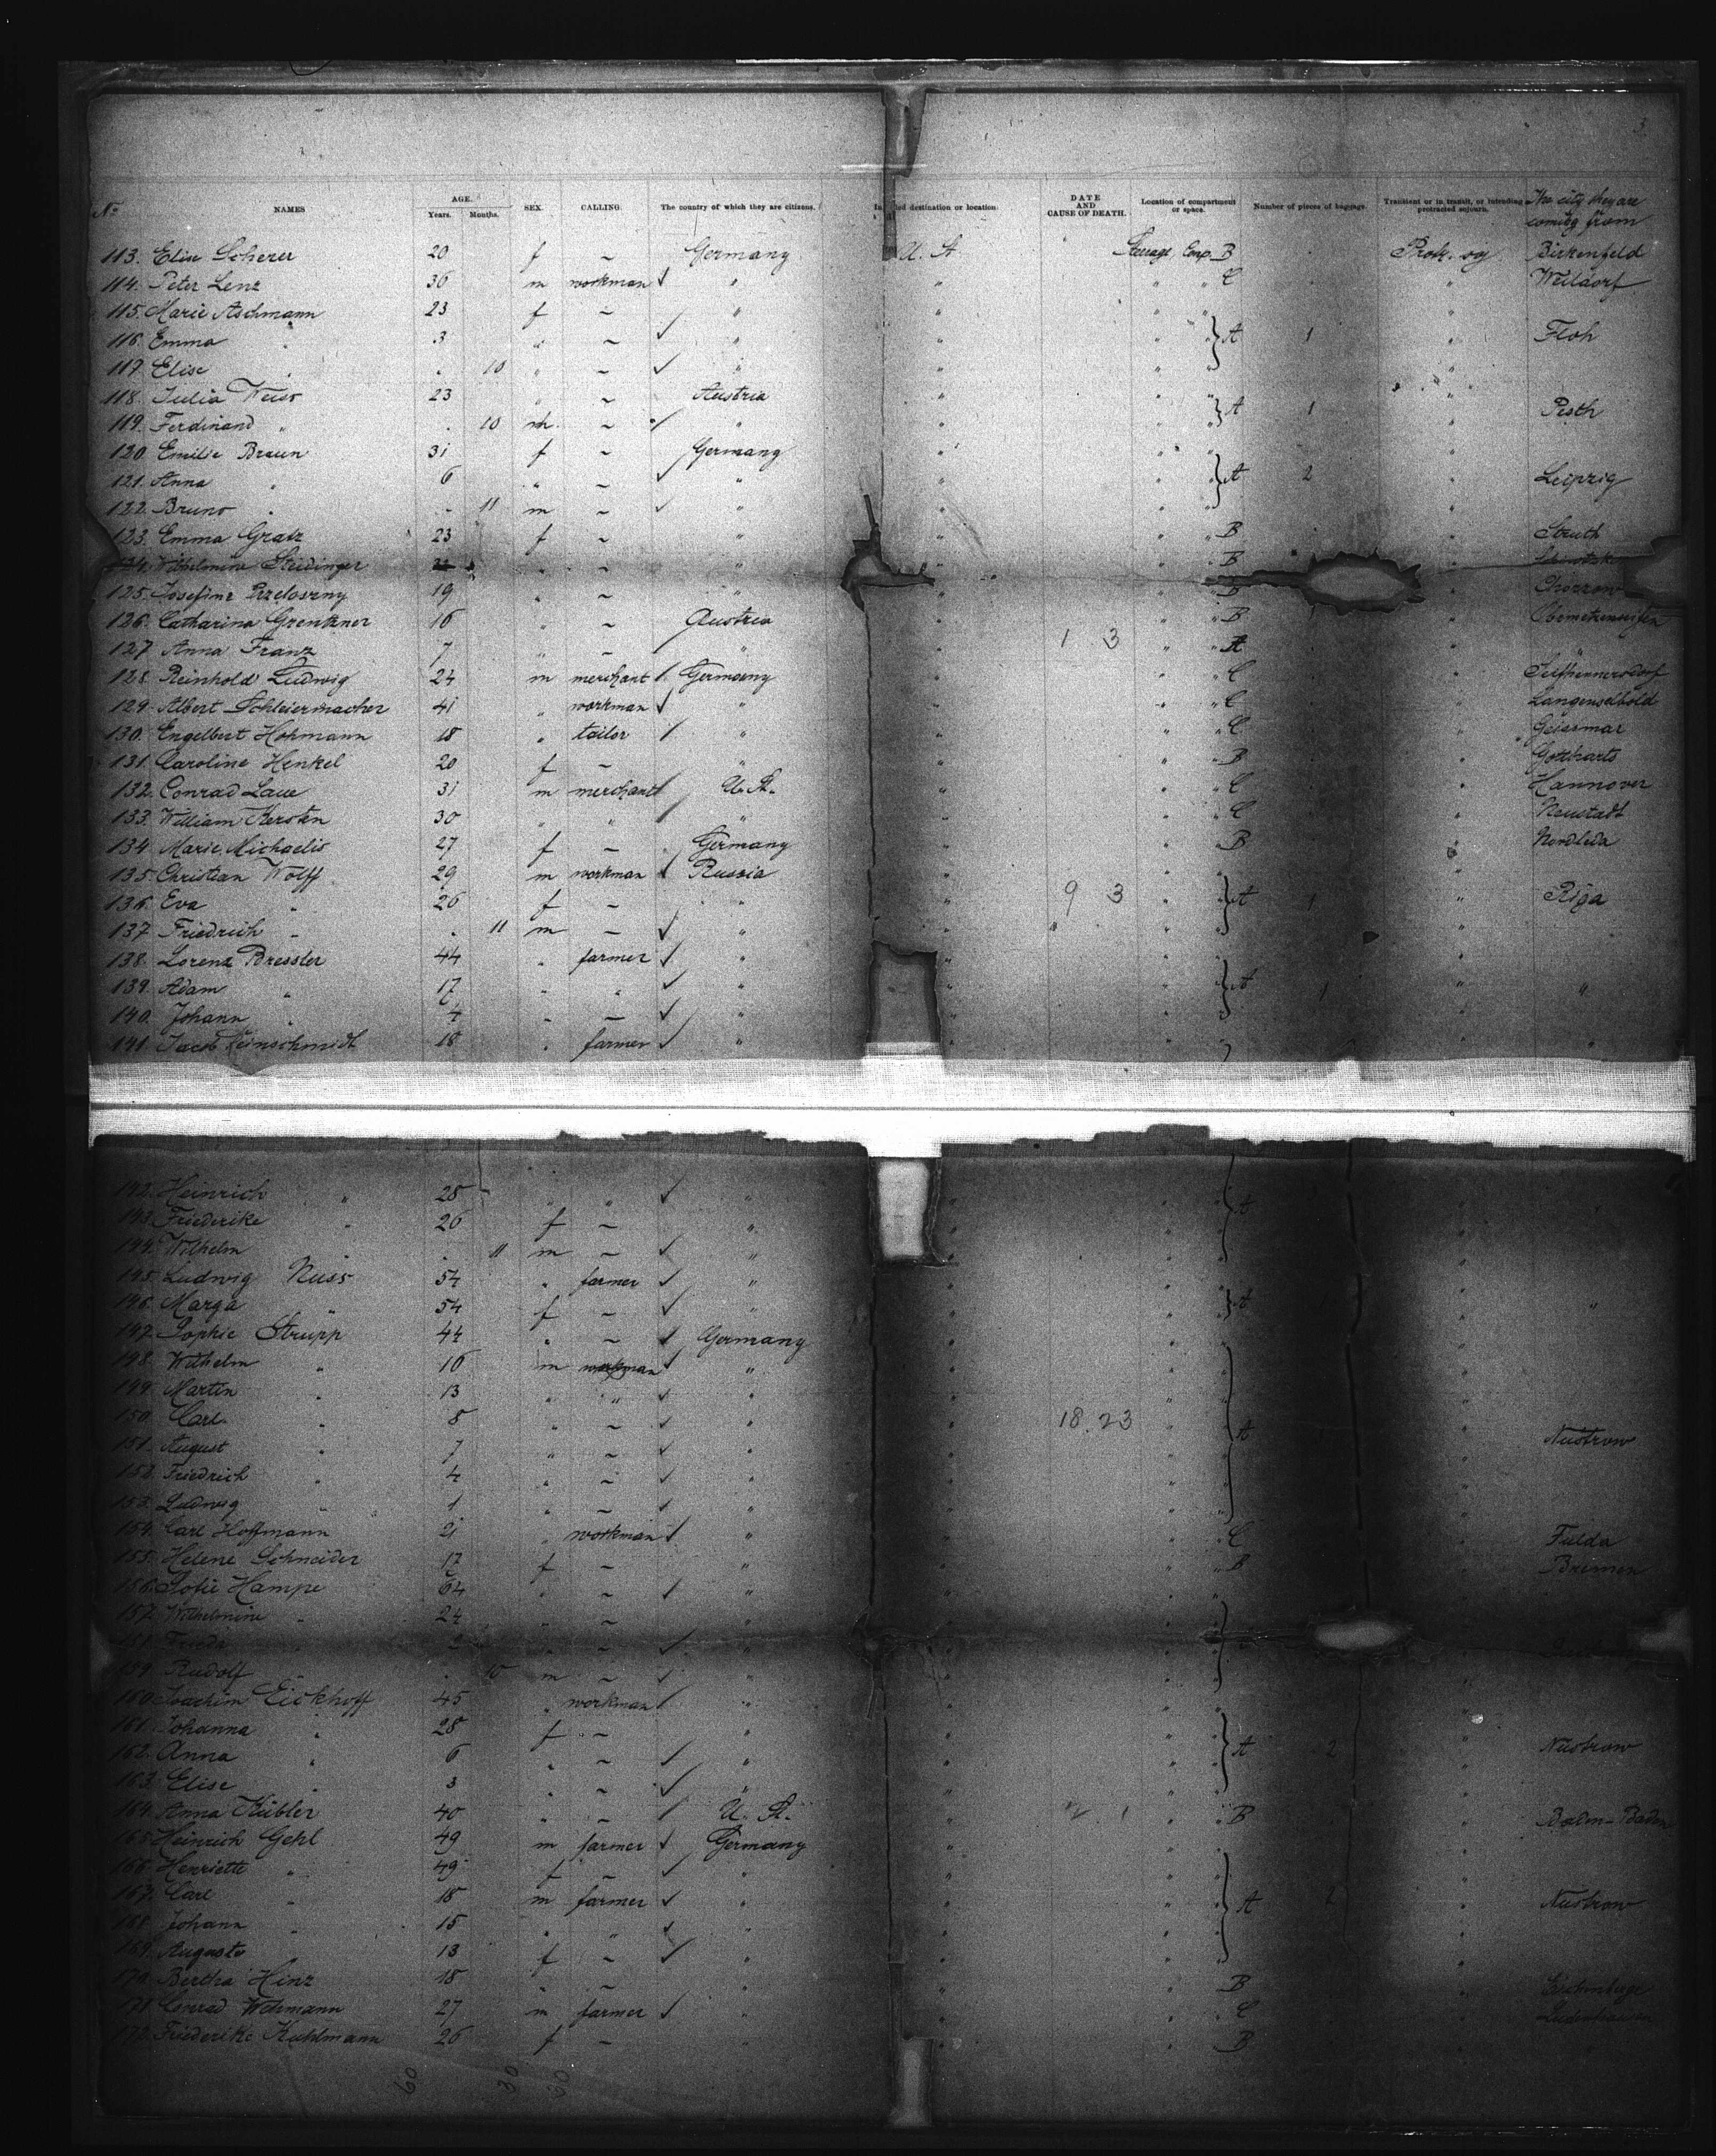 3.
No. NAMES AGE. Years. Months. SEX. CALLING. The country of which they are citizens. destination or location. DATE AND CAUSE OF DEATH. Location of compartment or space. Number of pieces of baggage. Transient or in transit, or intending protracted sojourn. The city they are coming from
113. Elise Scherer 20 f — Germany U. A. Steerage Comp. B Birkenfeld
114. Peter Lenz 36 m workman " " " " C " Weildorf
115. Marie Aschmann 23 f — " " " " "
116. Emma " 3 " — " " " " A 1 " Floh
117. Elise " . 10 " — " " " " "
118. Julia Weiss 23 " — Austria " " " "
119. Ferdinand " . 10 m — " " " " A 1 " Pesth
120. Emilie Braun 31 f — Germany " " " "
121. Anna " 6 " — " " " " A 2 " Leipzig
122. Bruno " . 11 m — " " " " "
123. Emma Gratz 23 f — " " " " B " Struth
124. Wilhelmine Steidinger " — " " " " B "
125. Josefine 19 " — " " " " B " Chorzow
126. Catharina Grenkner 16 " — Austria " " " B "
127. Anna Franz 7 " — " " 1 3 " " A "
128. Reinhold Ludwig 24 m merchant Germany " " " C " Seifhennersdorf
129. Albert Schleiermacher 41 " workman " " " " C " Langenselbold
130. Engelbert Hohmann 18 " tailor " " " " C " Geismar
131. Caroline Henkel 20 f — " " " " B " Gotthards
132. Conrad Laue 31 m merchant U. A. " " " C " Hannover
133. William Kersten 30 " " " " " " C " Neustadt
134. Marie Michaelis 27 f — Germany " " " B " Nordleda
135. Christian Wolff 29 m workman Russia " " " "
136. Eva " 26 f — " " 9 3 " " A 1 " Riga
137. Friedrich " . 11 m — " " " " " "
138. Lorenz Bressler 44 " farmer " " " " "
139. Adam " 17 " " " " " " A 1 " "
140. Johann " 4 " — " " " " "
141. Jacob Leinschmidt 18 " farmer " " " " " "
142. Heinrich " 28 " " " " " " A
143. Friederike " 26 f — " " " "
144. Wilhelm . 11 m — " " " " "
145. Ludwig Nuss 54 " farmer " " " " "
146. Marga " 54 f — " " " " A " "
147. Sophie Strupp 44 " — Germany " " " "
148. Wilhelm " 16 m workman " " " " "
149. Martin " 13 " " " " " " "
150. Carl " 8 " — " " 18 23 " " "
151. August " 7 " — " " " " A " Nustrow
152. Friedrich " 4 " — " " " " "
153. Ludwig " 1 " — " " " " "
154. Carl Hoffmann 21 " workman " " " " C " Fulda
155. Helene Schneider 17 f — " " " " B " Bremen
156. Sofie Hampe 64 " — " " " "
157. Wilhelmine " 24 " — " " " " "
158. Frieda " 2 " — " " " "
159. Rudolf " . 10 m — " " " " "
160. Joachim Eickhoff 45 " workman " " " " "
161. Johanna " 28 f — " " " " "
162. Anna " 6 " — " " " " A 2 " Nustrow
163. Elise " 3 " — " " " " "
164. Anna Kübler 40 " — U. A. " " B " Baden-Baden
165. Heinrich Gehl 49 m farmer Germany " " " "
166. Henriette " 49 f — " " " " "
167. Carl " 18 m farmer " " " " A 2 " Nustrow
168. Johann " 15 " " " " " " "
169. Auguste " 13 f — " " " " "
170. Bertha Hinz 18 " — " " " " B "
171. Conrad Wehmann 27 m farmer " " " " C "
172. Friederike Kuhlmann 26 f — " " " " B "
60 30